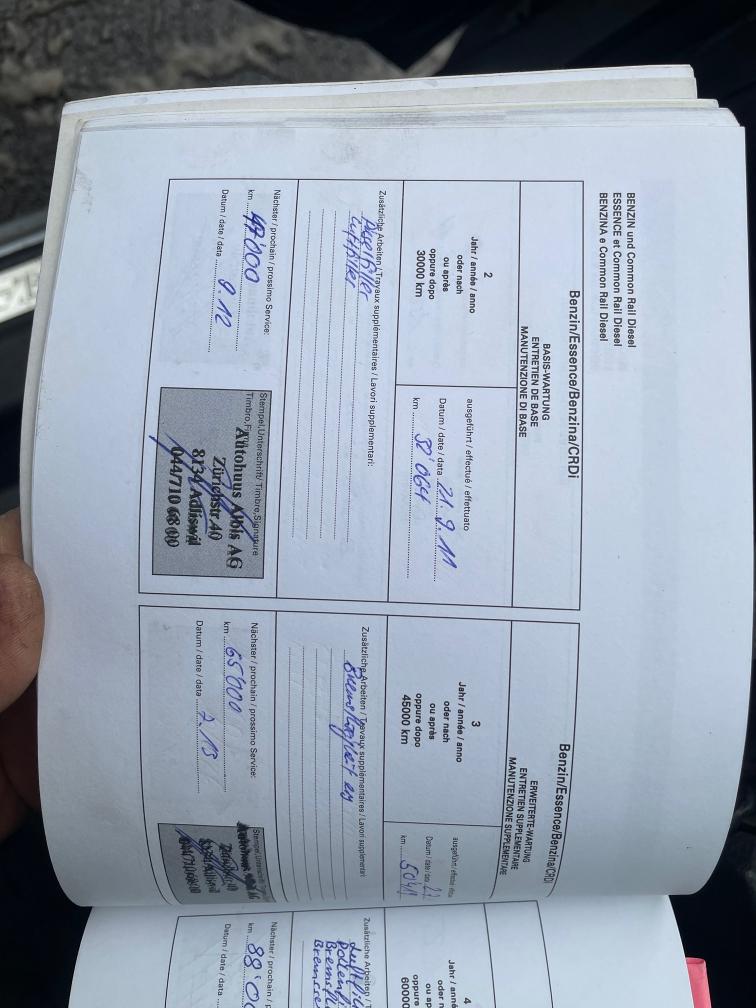 BENZIN und Common Rail Diesel
ESSENCE et Common Rail Diesel
BENZINA e Common Rail Diesel
Benzin/Essence/Benzina/CRDi
BASIS-WARTUNG
ENTRETIEN DE BASE
MANUTENZIONE DI BASE
2
Jahr / année / anno
oder nach
ou après
oppure dopo
30000 km
ausgeführt / effectué / effettuato
Datum / date / data 21.9.11
km 32'064
Zusätzliche Arbeiten / Travaux supplémentaires / Lavori supplementari:
Pollenfilter
Luftfilter
Nächster / prochain / prossimo Service:
km 47'000
Datum / date / data 9.12
Stempel,Unterschrift/ Timbre,Signature
Timbro,
Autohuus Albis AG
Zürichstr.40
8134 Adliswil
044/710 68 00
Benzin/Essence/Benzina/CRDi
ERWEITERTE-WARTUNG
ENTRETIEN SUPPLEMENTARE
MANUTENZIONE SUPPLEMENTARE
3
Jahr / année / anno
oder nach
ou après
oppure dopo
45000 km
ausgeführt / effectué
Datum / date / data
km
Zusätzliche Arbeiten / Travaux supplémentaires / Lavori supplementari
Nächster / prochain / prossimo Service:
km 65'000
Datum / date / data
044/710 68 00
4
Jahr / anné
oder n
ou ap
oppure
60000
Zusätzliche Arbeiten / T
Luftfil
Nächster / prochain
km 88'0
Datum / date / data